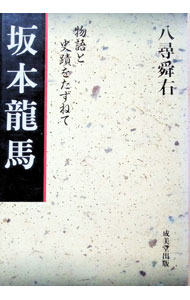 八尋舜右
物語と
史蹟をたずねて
坂本龍馬
成美堂出版